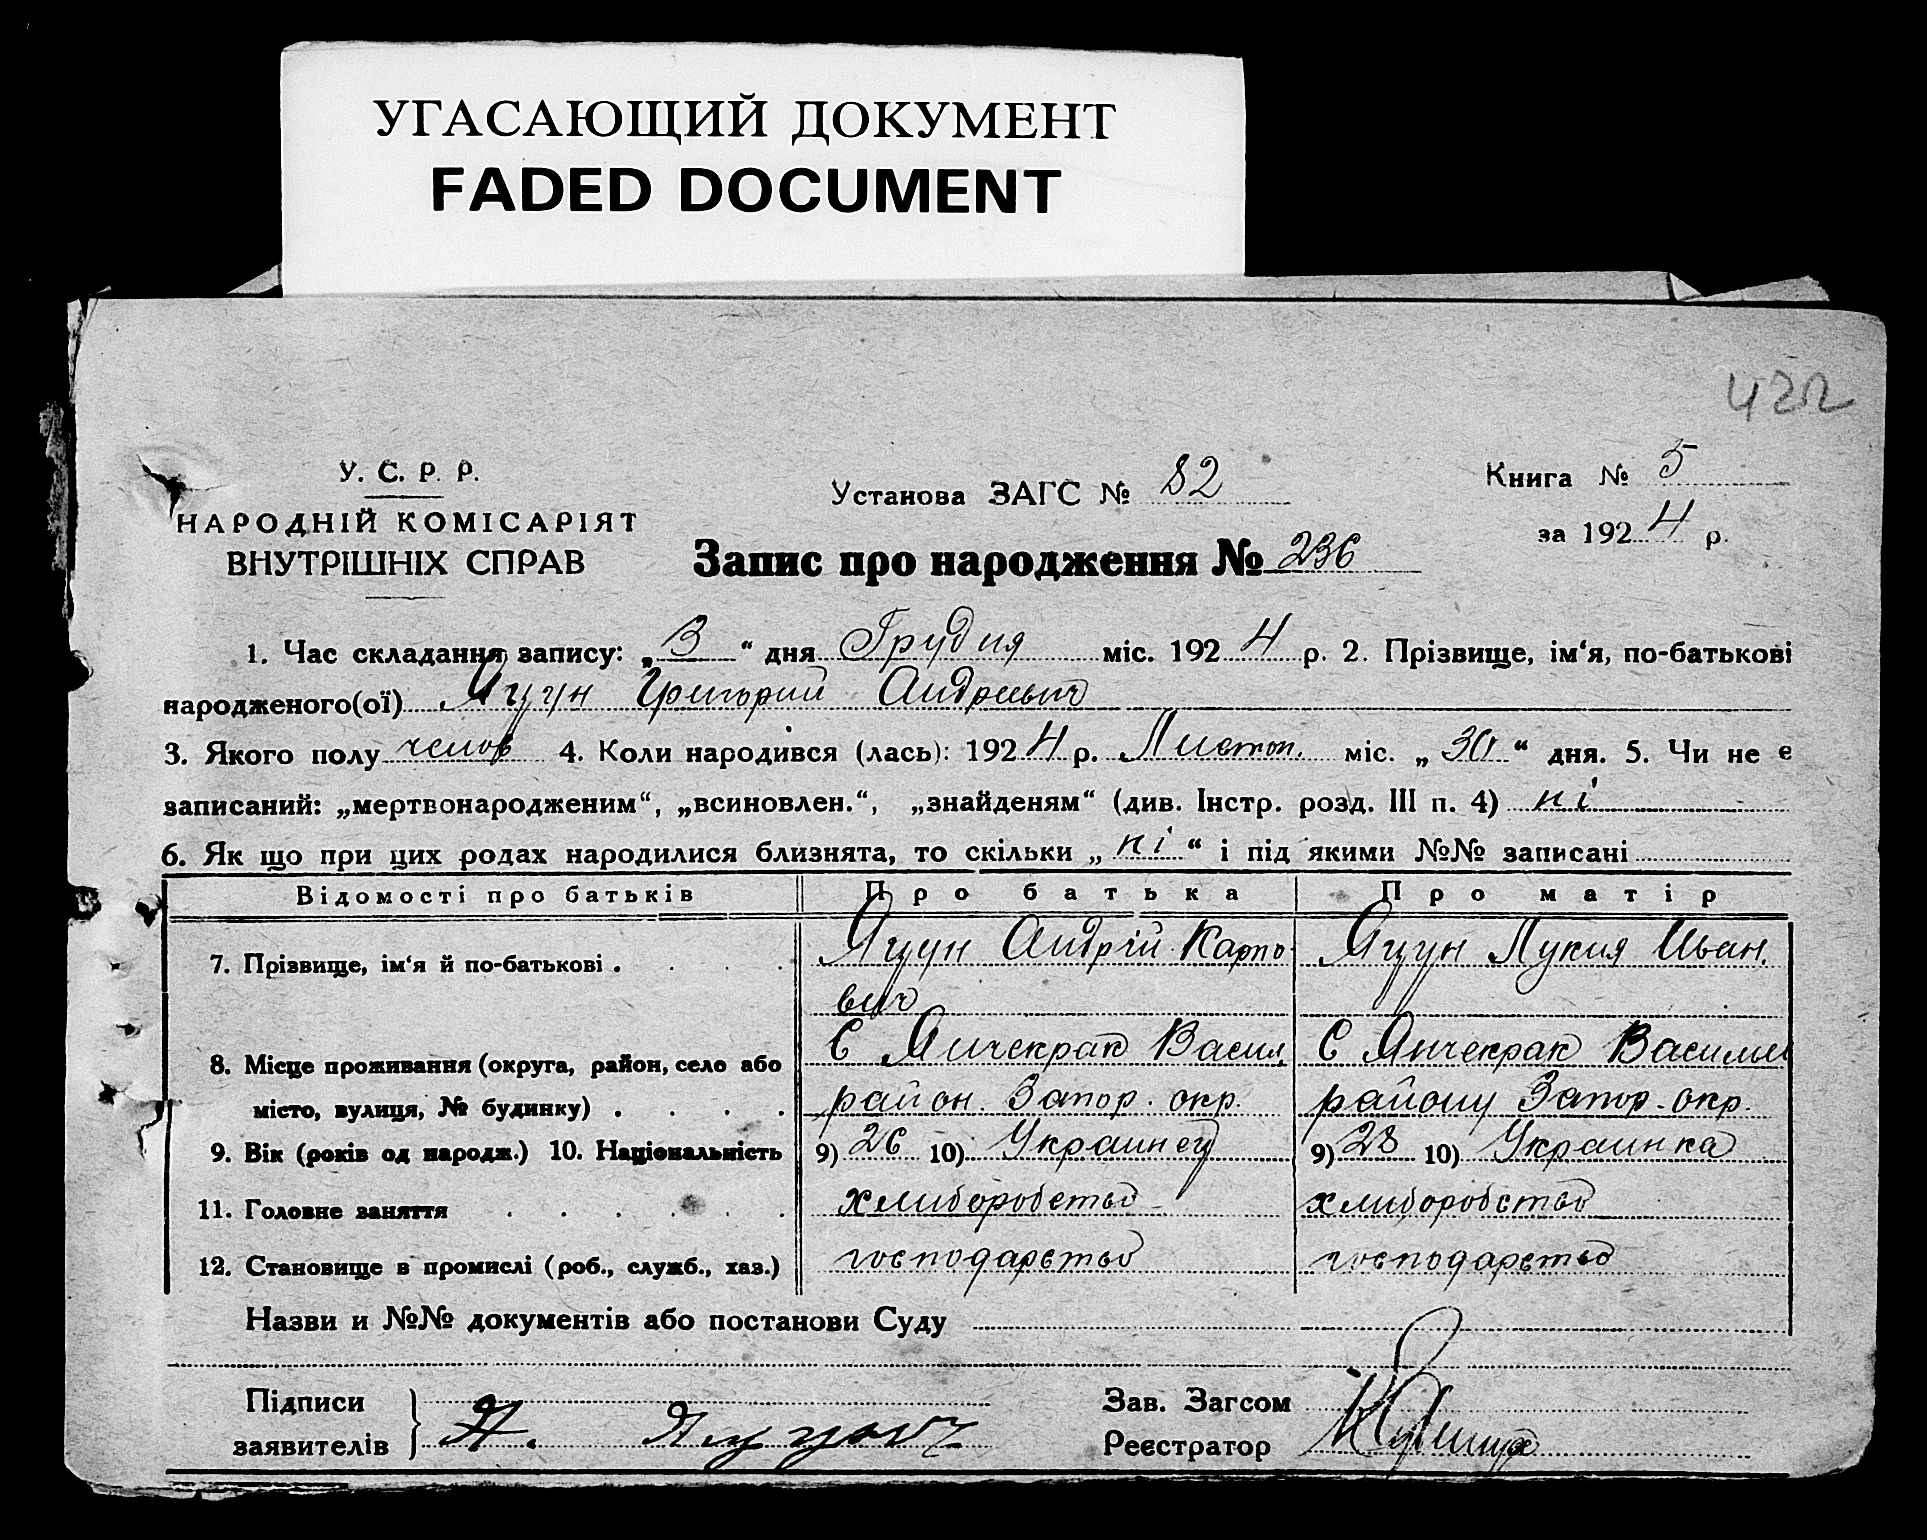 УГАСАЮЩИЙ ДОКУМЕНТ
FADED DOCUMENT
422
У. С. Р. Р.
НАРОДНІЙ КОМІСАРІЯТ
ВНУТРІШНІХ СПРАВ
Установа ЗАГС № 82
Книга № 5
за 1924 р.
Запис про народження № 236
1. Час складання запису: „3“ дня Грудня міс. 1924 р. 2. Прізвище, ім‘я, по-батькові
народженого(ої) Яцун Григорий Андреевич
3. Якого полу челов 4. Коли народився (лась): 1924 р. Листоп. міс. „30“ дня. 5. Чи не є
записаний: „мертвонародженим“, „всиновлен.“, „знайденям“ (див. Інстр. розд. III п. 4) ні
6. Як що при цих родах народилися близнята, то скільки „ні“ і під якими №№ записані
Відомості про батьків Про батька Про матір
7. Прізвище, ім‘я й по-батькові . . . . Яцун Андрій Карпо- Яцун Лукия Иван.
вич
8. Місце проживання (округа, район, село або С Янчекрак Васил. С Янчекрак Василье
місто, вулиця, № будинку) . . . . район. Запор. окр. району Запор. окр.
9. Вік (років од народж.) 10. Національність 9) 26 10) Украинец 9) 28 10) Украинка
11. Головне заняття . . . . . . хлиборобство хлиборобство
12. Становище в промислі (роб., служб., хаз.) господарство господарство
Назви и №№ документів або постанови Суду
Підписи
заявителів } Я. Яцун
Зав. Загсом
Реєстратор